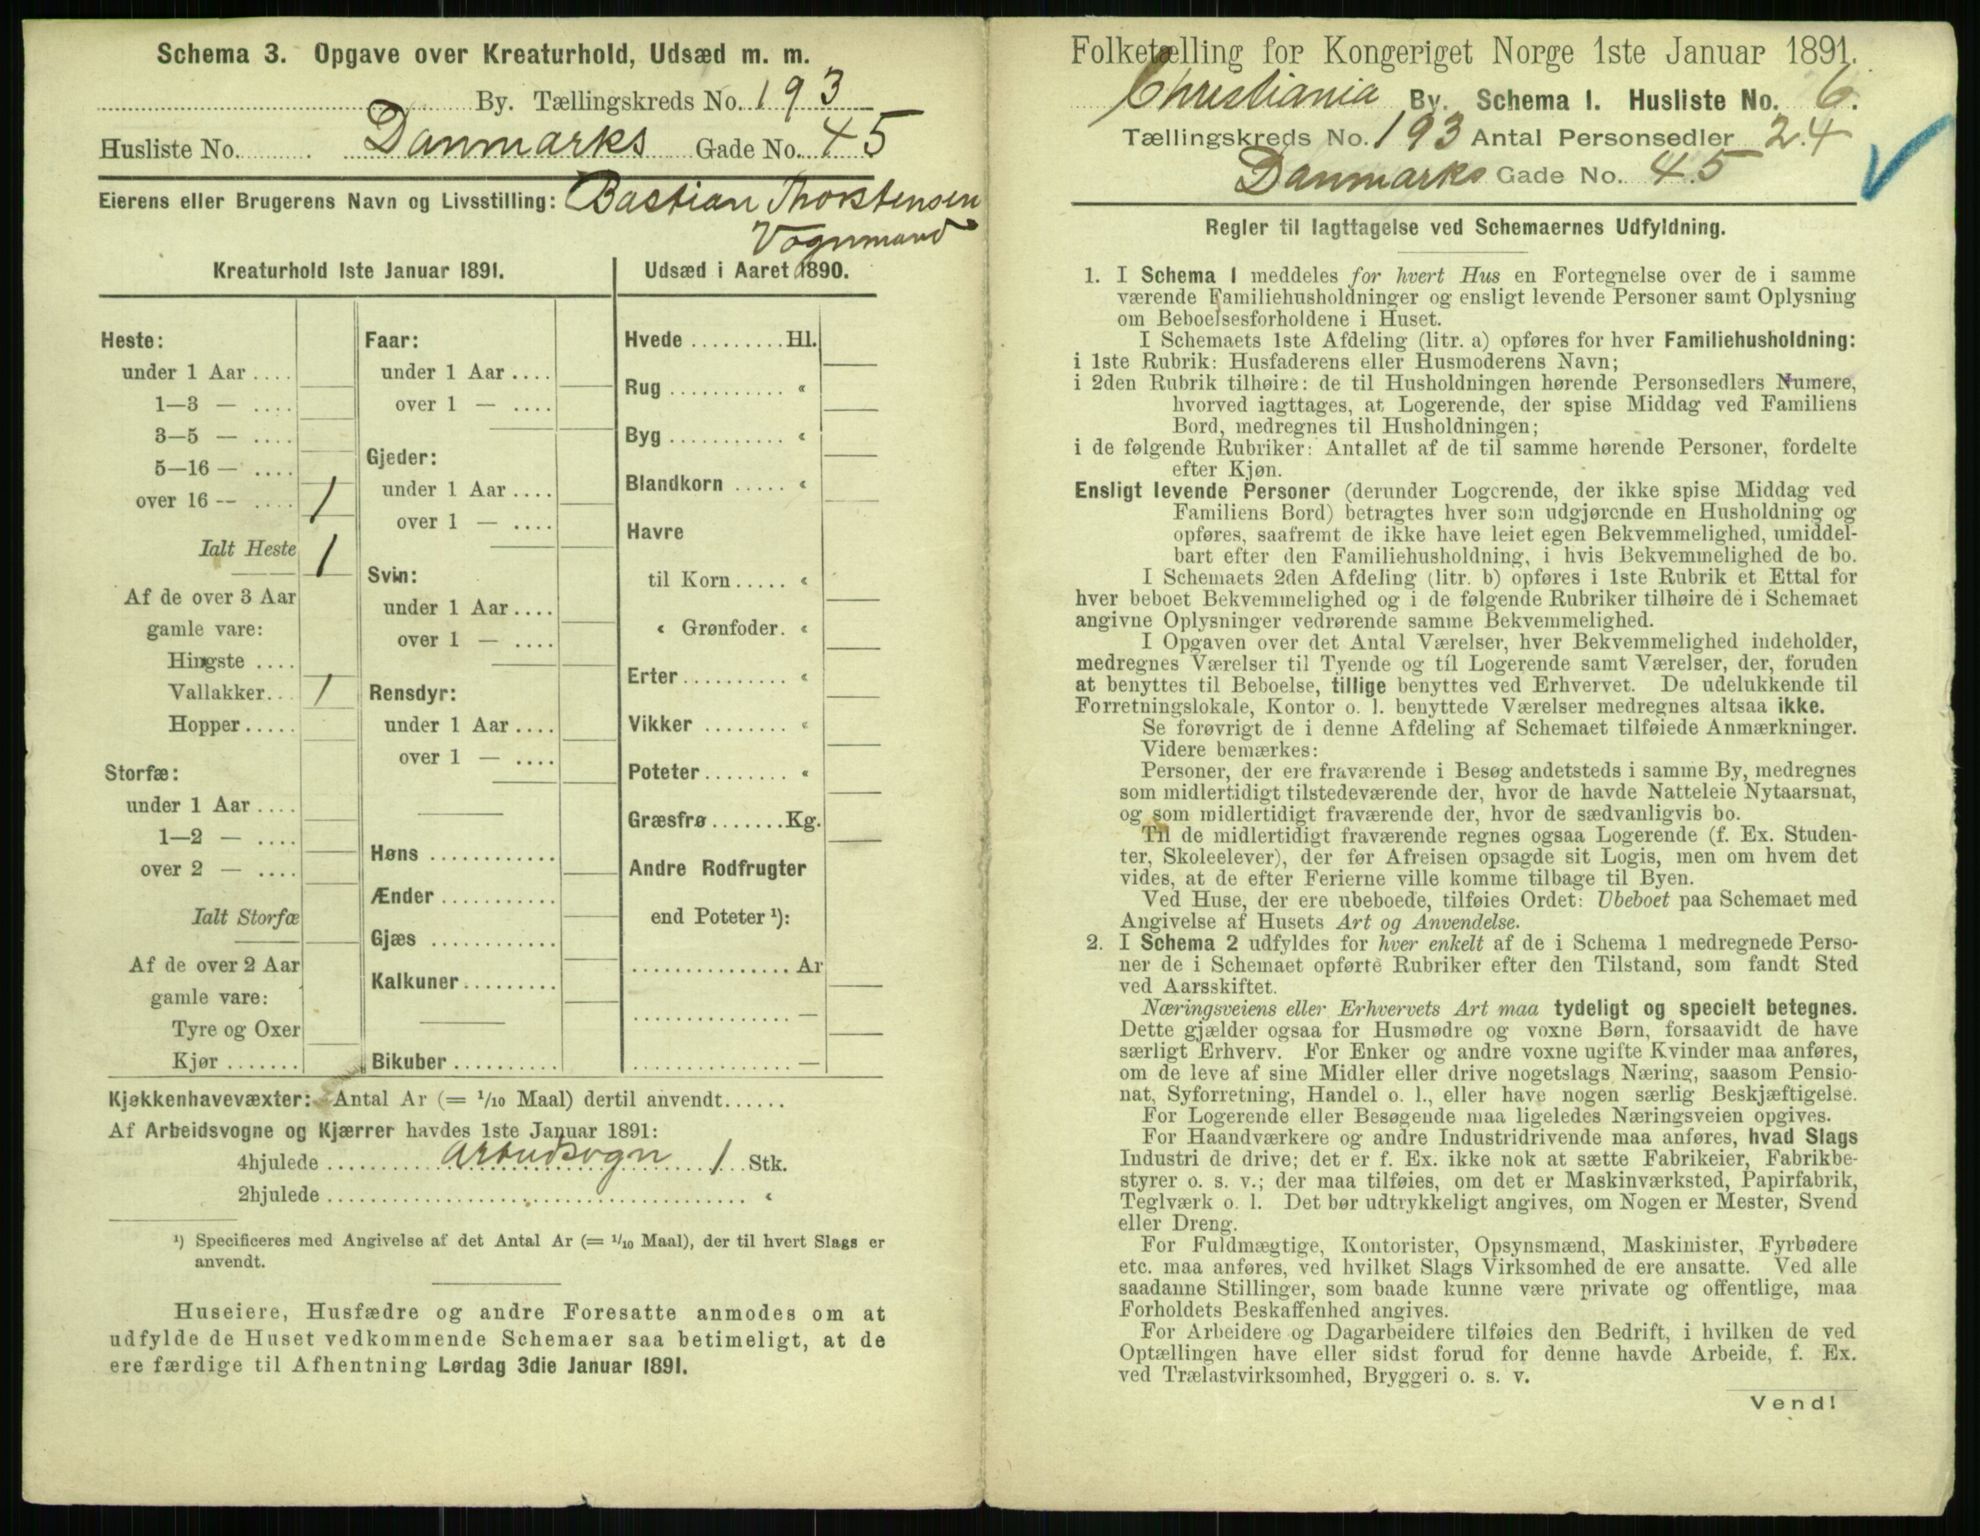 Schema 3. Opgave over Kreaturhold, Udsæd m. m.
By. Tællingskreds No. 193
Husliste No. Danmarks Gade No. 45
Eierens eller Brugerens Navn og Livsstilling: Bastian Thorstensen
Vognmand
Kreaturhold 1ste Januar 1891.
Heste:
under 1 Aar ....
1—3 — ....
3—5 — ....
5—16 — ....
over 16 — .... 1
Ialt Heste 1
Af de over 3 Aar
gamle vare:
Hingste ....
Vallakker.. 1
Hopper.....
Storfæ:
under 1 Aar ....
1—2 — ....
over 2 — ....
Ialt Storfæ
Af de over 2 Aar
gamle vare:
Tyre og Oxer
Kjør .......
Faar:
under 1 Aar ....
over 1 — ....
Gjeder:
under 1 Aar ....
over 1 — ....
Svin:
under 1 Aar ....
over 1 — ....
Rensdyr:
under 1 Aar ....
over 1 — ....
Høns ............
Ænder ...........
Gjæs ............
Kalkuner.........
Bikuber ..........
Udsæd i Aaret 1890.
Hvede .........Hl.
Rug ........... «
Byg ........... «
Blandkorn ..... «
Havre
til Korn..... «
« Grønfoder. «
Erter.......... «
Vikker ........ «
Poteter........ «
Græsfrø .......Kg.
Andre Rodfrugter
end Poteter ¹):
............... Ar
............... —
............... —
Kjøkkenhavevæxter: Antal Ar (= 1/10 Maal) dertil anvendt......
Af Arbeidsvogne og Kjærrer havdes 1ste Januar 1891:
4hjulede ........ Arbeidsvogn 1 Stk.
2hjulede ........ «
¹) Specificeres med Angivelse af det Antal Ar (= 1/10 Maal), der til hvert Slags er
anvendt.
Huseiere, Husfædre og andre Foresatte anmodes om at
udfylde de Huset vedkommende Schemaer saa betimeligt, at de
ere færdige til Afhentning Lørdag 3die Januar 1891.
Folketælling for Kongeriget Norge 1ste Januar 1891.
Christiania By. Schema 1. Husliste No. 6.
Tællingskreds No. 193 Antal Personsedler 24
Danmarks Gade No. 45
Regler til Iagttagelse ved Schemaernes Udfyldning.
1. I Schema 1 meddeles for hvert Hus en Fortegnelse over de i samme
værende Familiehusholdninger og ensligt levende Personer samt Oplysning
om Beboelsesforholdene i Huset.
I Schemaets 1ste Afdeling (litr. a) opføres for hver Familiehusholdning:
i 1ste Rubrik: Husfaderens eller Husmoderens Navn;
i 2den Rubrik tilhøire: de til Husholdningen hørende Personsedlers Numere,
hvorved iagttages, at Logerende, der spise Middag ved Familiens
Bord, medregnes til Husholdningen;
i de følgende Rubriker: Antallet af de til samme hørende Personer, fordelte
efter Kjøn.
Ensligt levende Personer (derunder Logerende, der ikke spise Middag ved
Familiens Bord) betragtes hver som udgjørende en Husholdning og
opføres, saafremt de ikke have leiet egen Bekvemmelighed, umiddel-
bart efter den Familiehusholdning, i hvis Bekvemmelighed de bo.
I Schemaets 2den Afdeling (litr. b) opføres i 1ste Rubrik et Ettal for
hver beboet Bekvemmelighed og i de følgende Rubriker tilhøire de i Schemaet
angivne Oplysninger vedrørende samme Bekvemmelighed.
I Opgaven over det Antal Værelser, hver Bekvemmelighed indeholder,
medregnes Værelser til Tyende og til Logerende samt Værelser, der, foruden
at benyttes til Beboelse, tillige benyttes ved Erhvervet. De udelukkende til
Forretningslokale, Kontor o. l. benyttede Værelser medregnes altsaa ikke.
Se forøvrigt de i denne Afdeling af Schemaet tilføiede Anmærkninger.
Videre bemærkes:
Personer, der ere fraværende i Besøg andetsteds i samme By, medregnes
som midlertidigt tilstedeværende der, hvor de havde Natteleie Nytaarsnat,
og som midlertidigt fraværende der, hvor de sædvanligvis bo.
Til de midlertidigt fraværende regnes ogsaa Logerende (f. Ex. Studen-
ter, Skoleelever), der før Afreisen opsagde sit Logis, men om hvem det
vides, at de efter Ferierne ville komme tilbage til Byen.
Ved Huse, der ere ubeboede, tilføies Ordet: Ubeboet paa Schemaet med
Angivelse af Husets Art og Anvendelse.
2. I Schema 2 udfyldes for hver enkelt af de i Schema 1 medregnede Perso-
ner de i Schemaet opførte Rubriker efter den Tilstand, som fandt Sted
ved Aarsskiftet.
Næringsveiens eller Erhvervets Art maa tydeligt og specielt betegnes.
Dette gjælder ogsaa for Husmødre og voxne Børn, forsaavidt de have
særligt Erhverv. For Enker og andre voxne ugifte Kvinder maa anføres,
om de leve af sine Midler eller drive nogetslags Næring, saasom Pensio-
nat, Syforretning, Handel o. l., eller have nogen særlig Beskjæftigelse.
For Logerende eller Besøgende maa ligeledes Næringsveien opgives.
For Haandværkere og andre Industridrivende maa anføres, hvad Slags
Industri de drive; det er f. Ex. ikke nok at sætte Fabrikeier, Fabrikbe-
styrer o. s. v.; der maa tilføies, om det er Maskinværksted, Papirfabrik,
Teglværk o. l. Det bør udtrykkeligt angives, om Nogen er Mester, Svend
eller Dreng.
For Fuldmægtige, Kontorister, Opsynsmænd, Maskinister, Fyrbødere
etc. maa anføres, ved hvilket Slags Virksomhed de ere ansatte. Ved alle
saadanne Stillinger, som baade kunne være private og offentlige, maa
Forholdets Beskaffenhed angives.
For Arbeidere og Dagarbeidere tilføies den Bedrift, i hvilken de ved
Optællingen have eller sidst forud for denne havde Arbeide, f. Ex.
ved Trælastvirksomhed, Bryggeri o. s. v.
Vend!